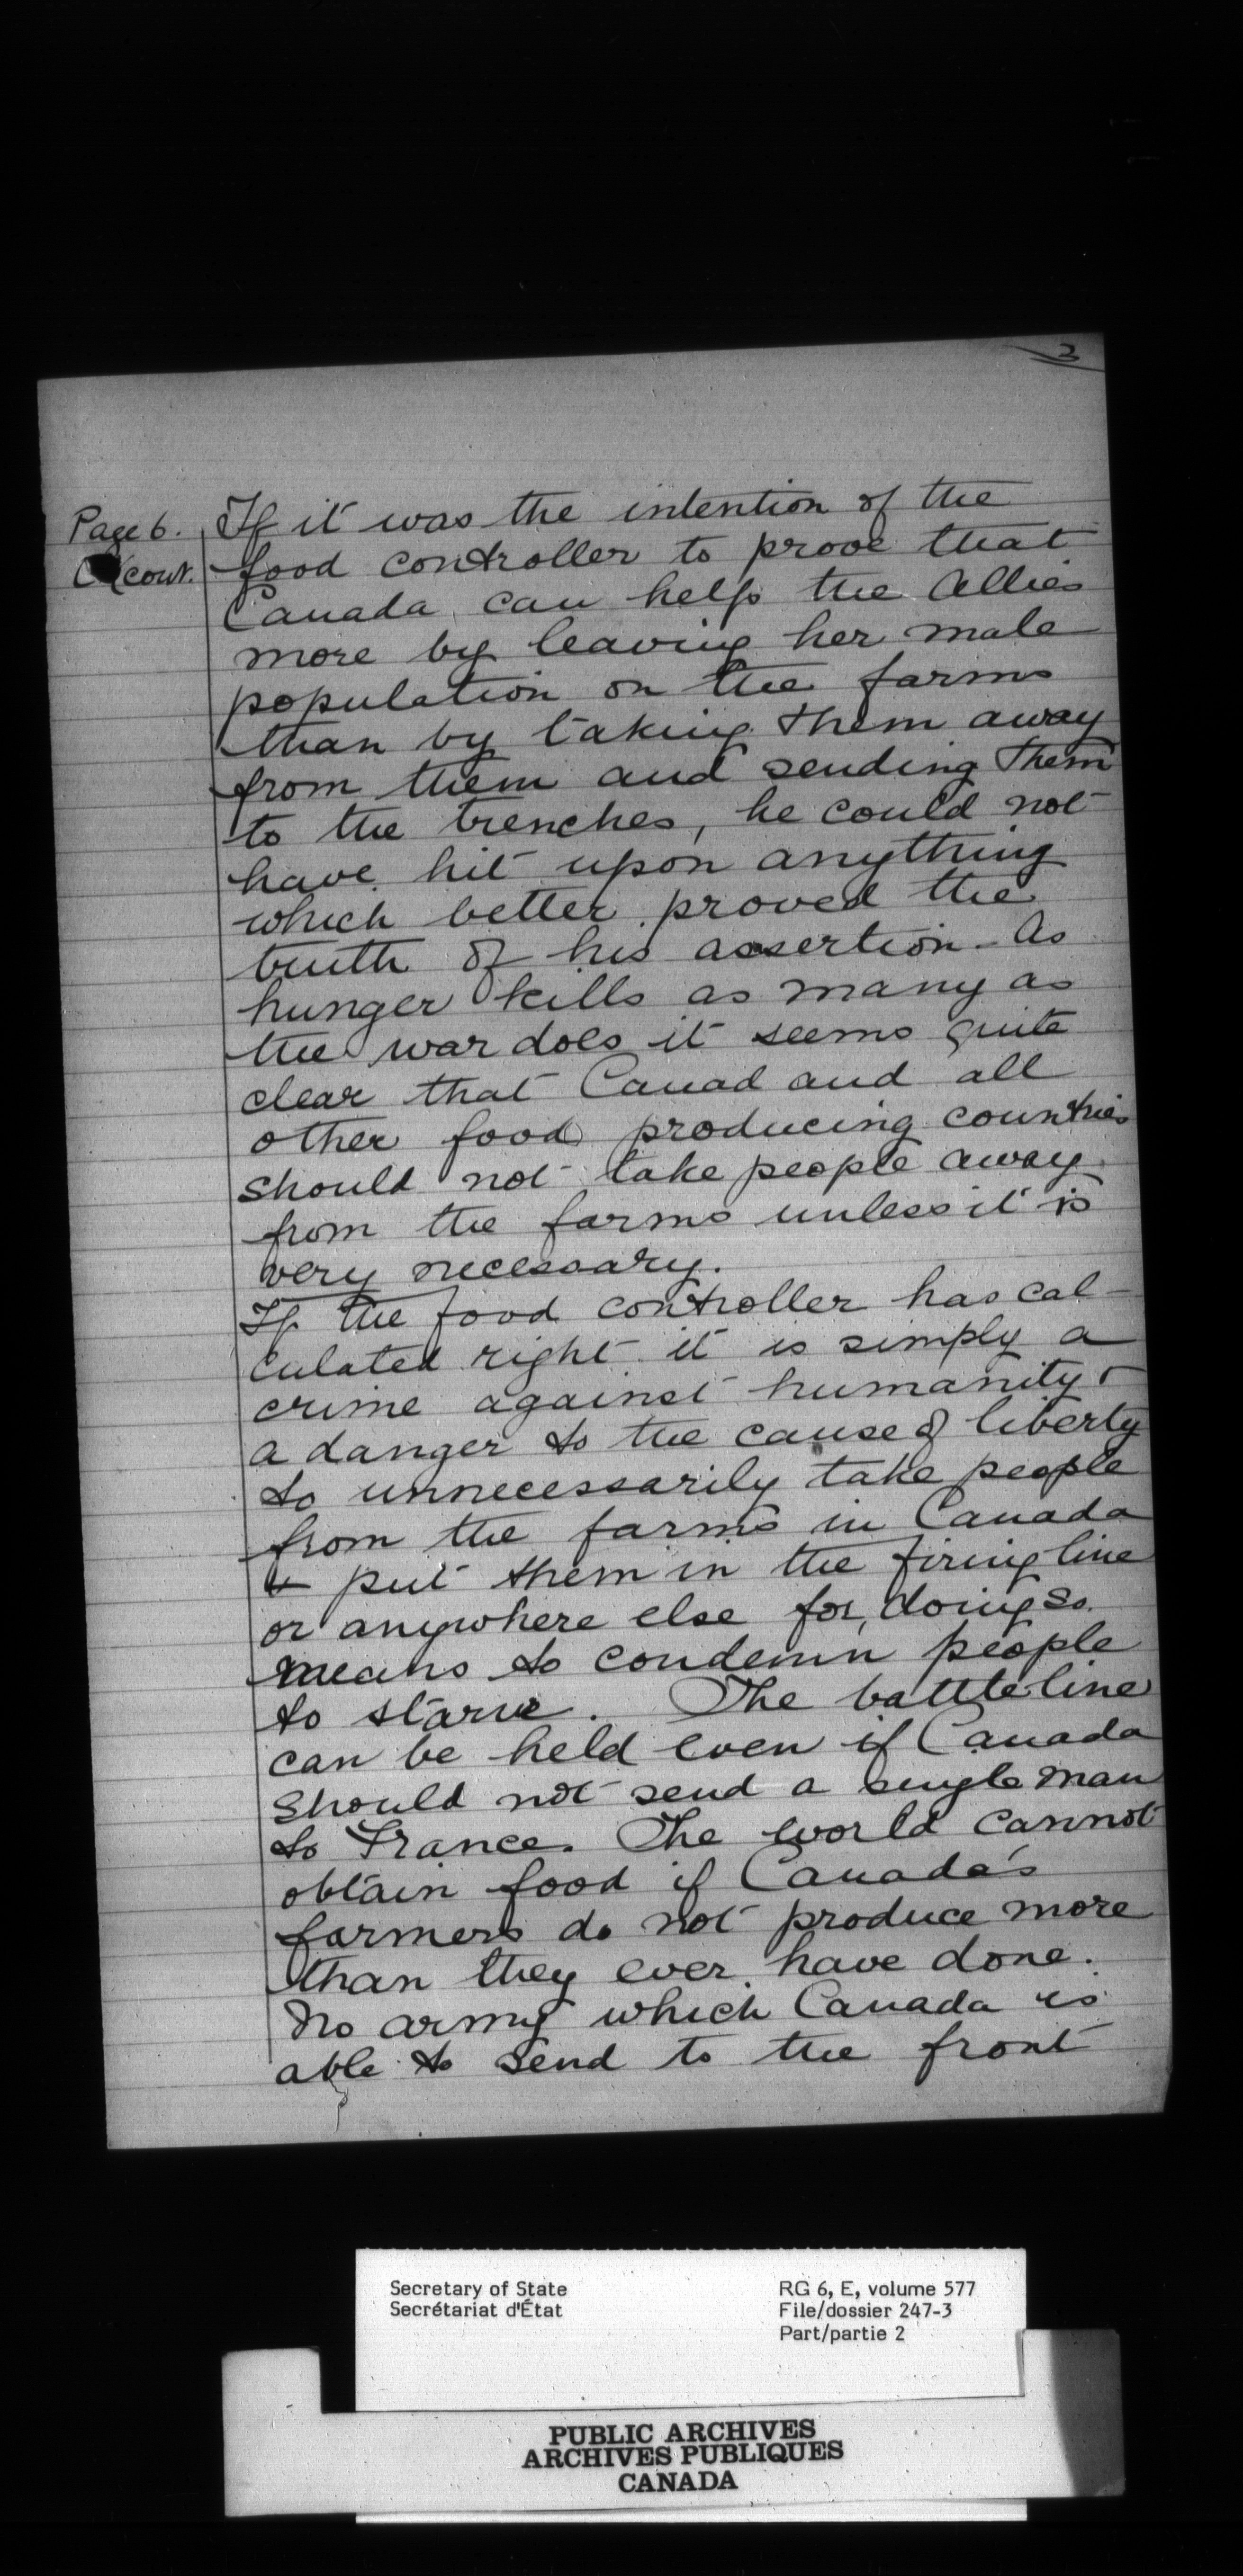 3
Page 6.
(cont.
If it was the intention of the
food controller to prove that
Canada can help the Allies
more by leaving her male
population on the farms
than by taking them away
from them and sending them
to the trenches, he could not
have hit upon anything
which better proved the
truth of his assertion. As
hunger kills as many as
the war does it seems quite
clear that Canad and all
other food producing countries
should not take people away
from the farms unless it is
very necessary.
If the food controller has cal-
culated right it is simply a
crime against humanity &
a danger to the cause of liberty
to unnecessarily take people
from the farms in Canada
& put them in the firing line
or anywhere else for, doing so
means to condemn people
to starve. The battle line
can be held even if Canada
should not send a single man
to France. The world cannot
obtain food if Canada's
farmers do not produce more
than they ever have done.
No army which Canada is
able to send to the front
Secretary of State
Secrétariat d'État
RG 6, E, volume 577
File/dossier 247-3
Part/partie 2
PUBLIC ARCHIVES
ARCHIVES PUBLIQUES
CANADA